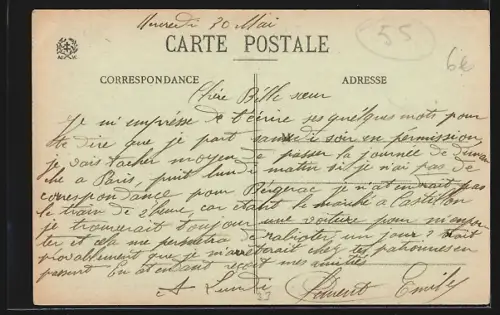 Mercredi 30 Mai
55
CARTE POSTALE
6e
CORRESPONDANCE
ADRESSE
Chère Belle sœur
Je m'empresse de t'écrire ses quelques mots pour
te dire que je part samedi soir en permission
je vais tacher moyen de passer la journée de
che a Paris, puit lundi matin si je n'ai pas de
correspondance pour Bergerac je n'atendrait pas
le train de 2 heure, car étant le marché a Castillon
je trouverait toujour une voiture pour m'en
ter et cela me permetra de un jour
provablement que je chez tes patronnes en
passant En atendant reçoit mes amitiés
A Lundi
Laurent Emile